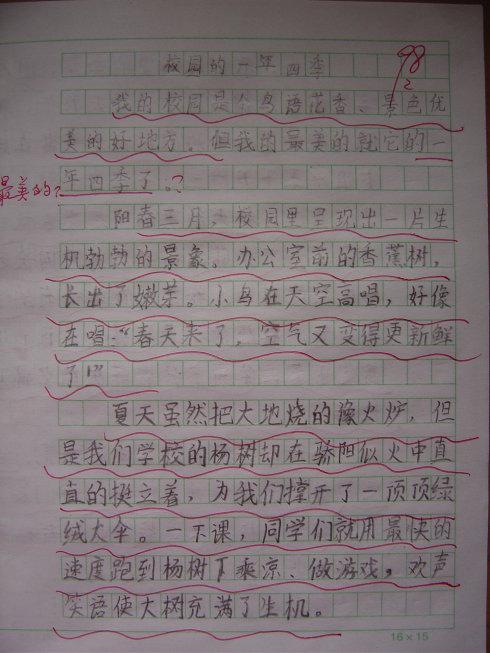 98
2
校园的一年四季
我的校园是个鸟语花香、景色优
美的好地方。但我的最美的就它的一
最美的?
年四季了。?
阳春三月,校园里呈现出一片生
机勃勃的景象。办公室前的香蕉树,
长出了嫩芽。小鸟在天空高唱,好像
在唱:“春天来了,空气又变得更新鲜
了!”
夏天虽然把大地烧的像火炉,但
是我们学校的杨树却在骄阳似火中直
直的挺立着,为我们撑开了一顶顶绿
绒大伞。一下课,同学们就用最快的
速度跑到杨树下乘凉、做游戏,欢声
笑语使大树充满了生机。
16×15